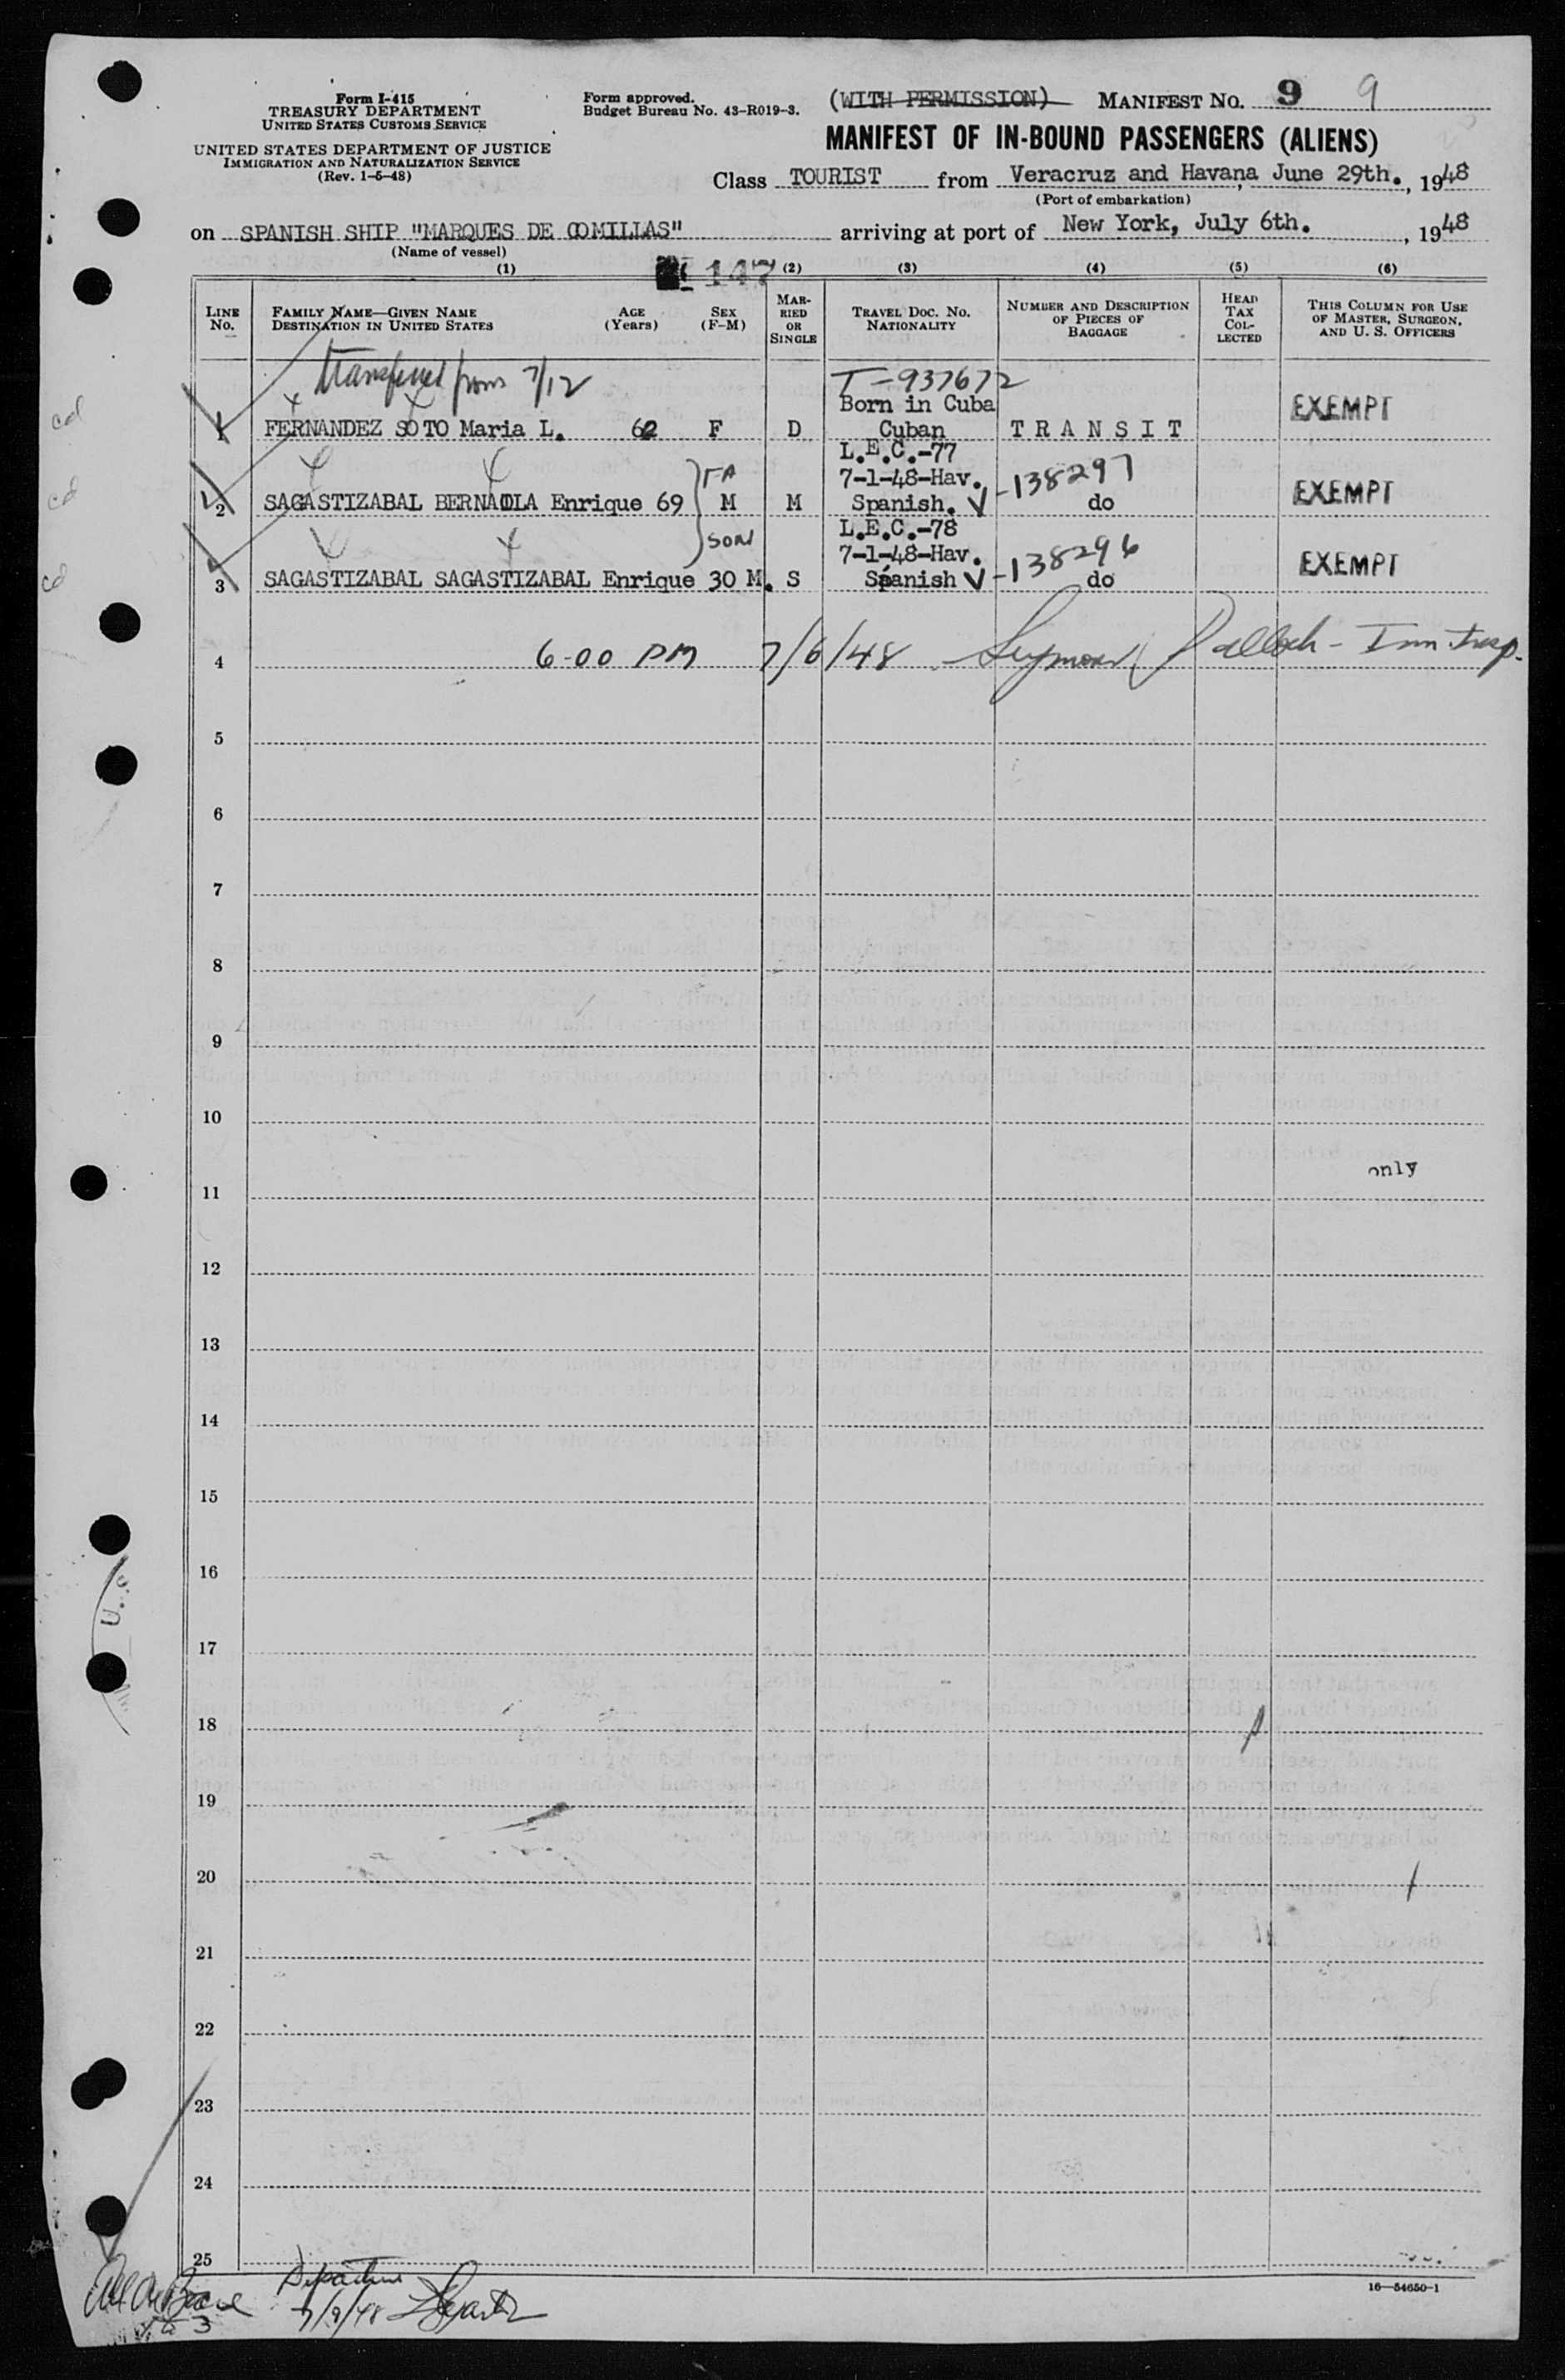 Form I-415
TREASURY DEPARTMENT
UNITED STATES CUSTOMS SERVICE
UNITED STATES DEPARTMENT OF JUSTICE
IMMIGRATION AND NATURALIZATION SERVICE
(Rev. 1-5-48)
Form approved.
Budget Bureau No. 43-R019-3.
(WITH PERMISSION) MANIFEST NO. 9 9
MANIFEST OF IN-BOUND PASSENGERS (ALIENS)
Class TOURIST from Veracruz and Havana, June 29th., 1948
(Port of embarkation)
on SPANISH SHIP "MARQUES DE COMILLAS" arriving at port of New York, July 6th., 1948
(Name of vessel)
(1) 147 (2) (3) (4) (5) (6)
LINE No.
FAMILY NAME—GIVEN NAME
DESTINATION IN UNITED STATES
AGE (Years)
SEX (F-M)
MARRIED OR SINGLE
TRAVEL DOC. NO. NATIONALITY
NUMBER AND DESCRIPTION OF PIECES OF BAGGAGE
HEAD TAX COLLECTED
THIS COLUMN FOR USE OF MASTER, SURGEON, AND U. S. OFFICERS
transferred from 7/12 T-937672
Born in Cuba EXEMPT
cd 1 FERNANDEZ SOTO Maria L. 62 F D Cuban TRANSIT
L.E.C.-77
FA 7-1-48-Hav. -138297
cd 2 SAGASTIZABAL BERNAOLA Enrique 69 M M Spanish. V do EXEMPT
L.E.C.-78
SON 7-1-48-Hav. -138296
cd 3 SAGASTIZABAL SAGASTIZABAL Enrique 30 M. S Spanish V do EXEMPT
4 6-00 PM 7/6/48 Seymour Imm. Insp.
5
6
7
8
9
10
only
11
12
13
14
15
16
U.S
17
18
19
20
21
22
23
24
25
16—54650-1
Departure
7/9/48
3